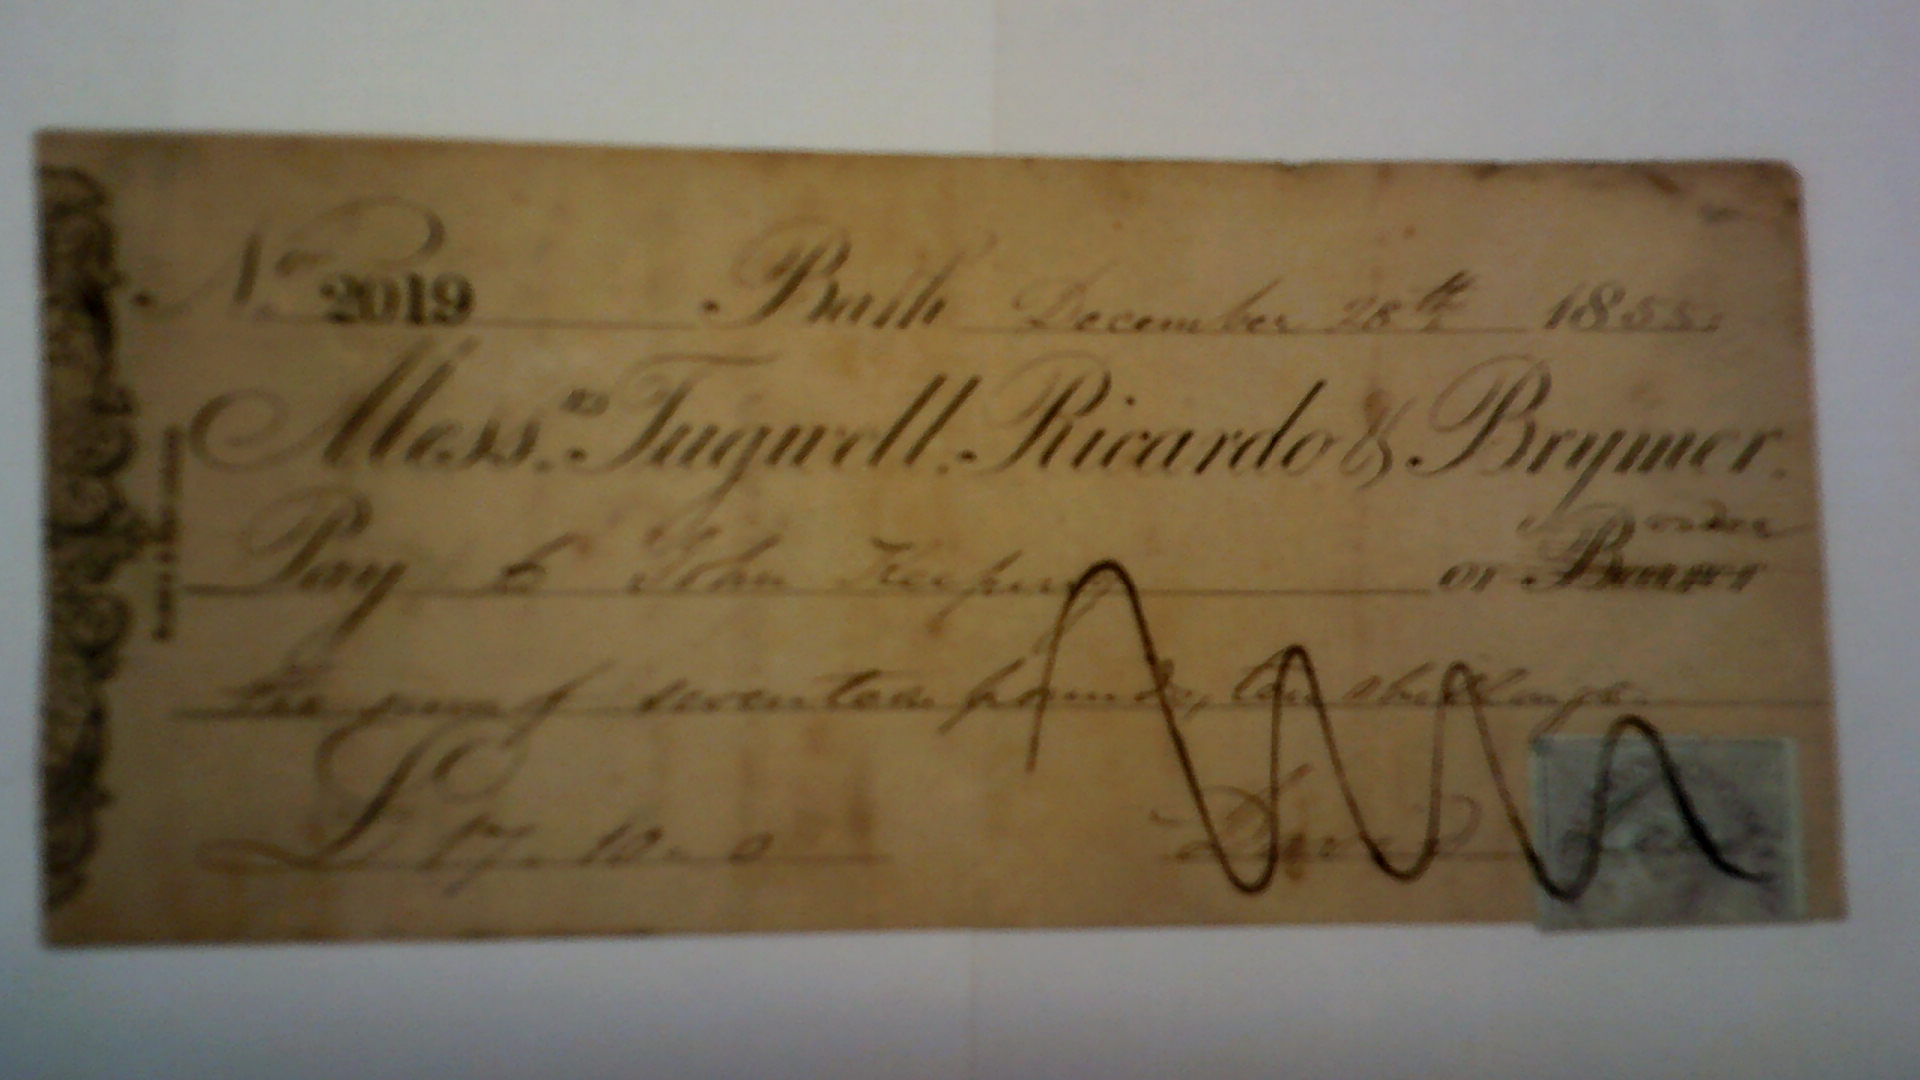 No. 2019 Bath December 28th 1855
Messrs. Tugwell, Ricardo & Brymer.
order
Pay to John Keeping or Bearer
the sum of seventeen pounds, ten shillings.
£ 17 - 10 - 0 David